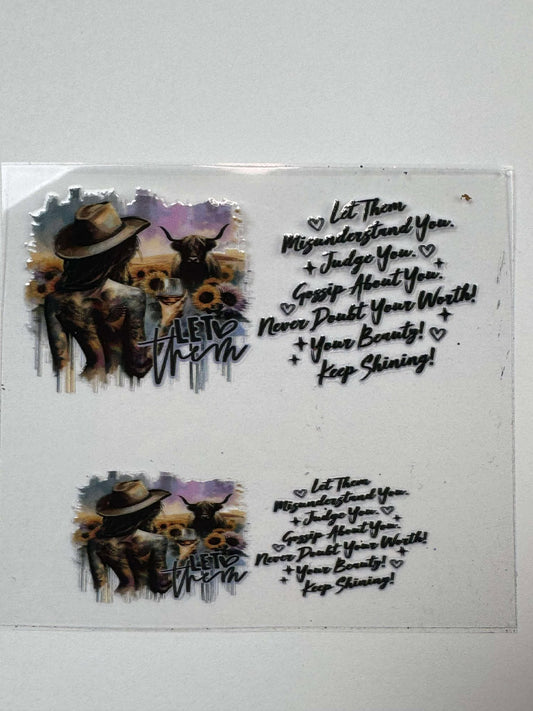 LET
them
Let Them
Misunderstand You.
Judge You.
Gossip About You.
Never Doubt Your Worth!
Your Beauty!
Keep Shining!
LET
them
Let Them
Misunderstand You.
Judge You.
Gossip About You.
Never Doubt Your Worth!
Your Beauty!
Keep Shining!